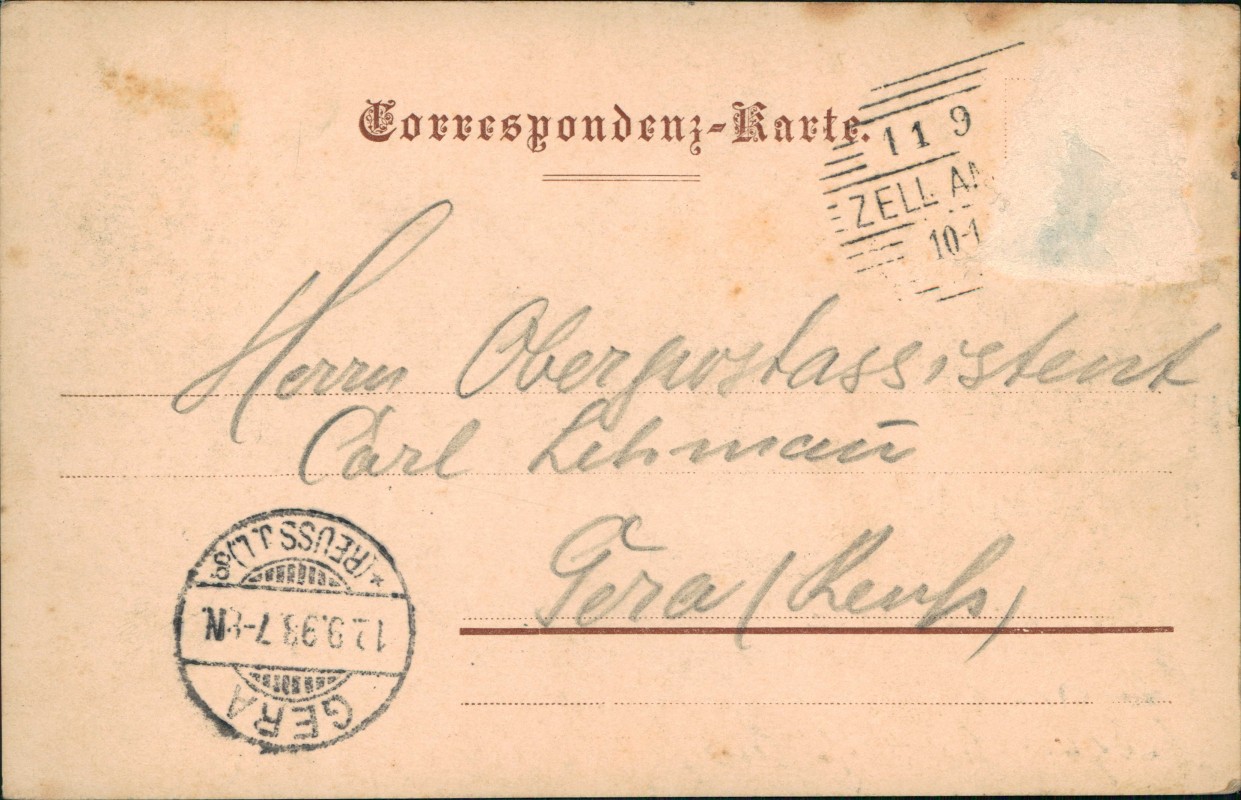 Correspondenz-Karte.
11 9
ZELL AM
10-1
Herrn Oberpostassistent
Carl Lehmañ
Gera (Reuß)
*(REUSS J.L.)S
12.9.98.7-8N.
GERA